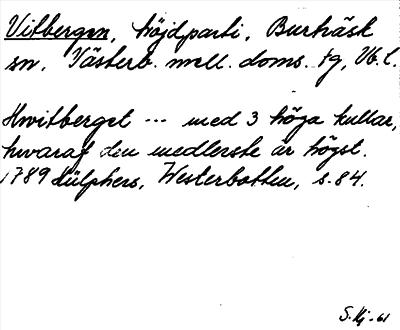 Vitbergen, höjdparti, Burträsk
sn, Västerb. mell. doms. tg, Vb. l.
Hwitberget --- med 3 höga kullar,
hwaraf den medlerste är högst.
1789 Hülphers, Westerbotten, s. 84.
S. Hj. -61